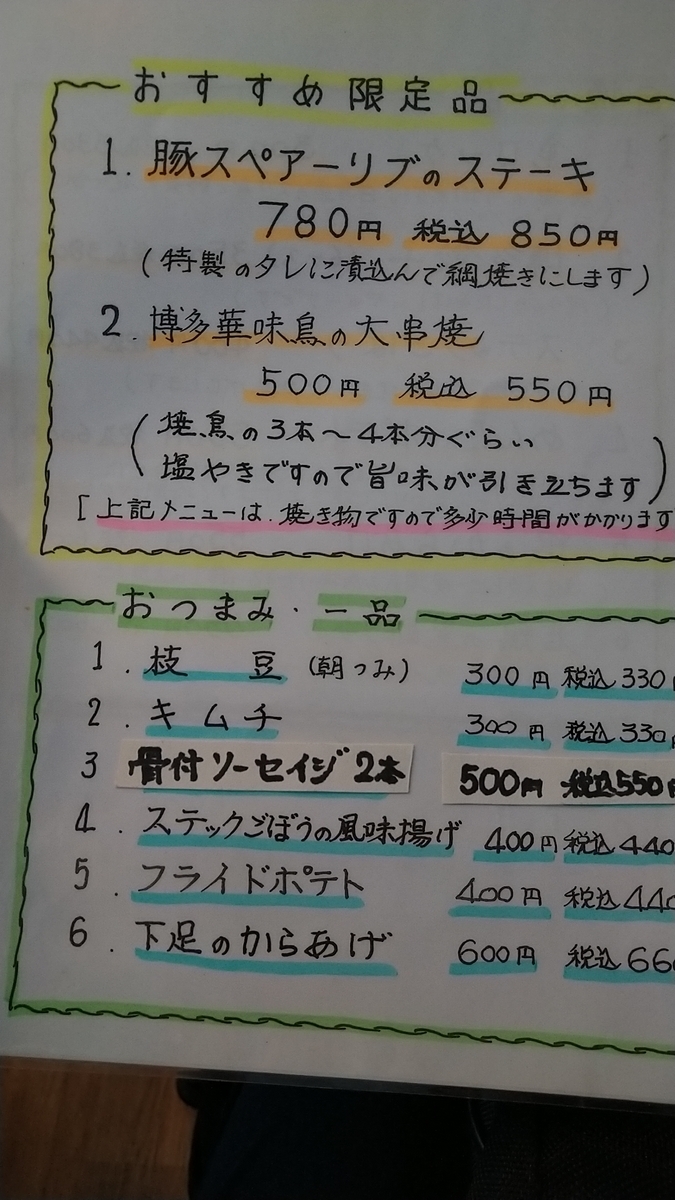 おすすめ限定品
1. 豚スペアーリブのステーキ
780円 税込 850円
(特製のタレに漬込んで網焼きにします)
2. 博多華味鳥の大串焼
500円 税込 550円
(焼鳥の3本〜4本分ぐらい
塩やきですので旨味が引き立ちます)
[上記メニューは.焼き物ですので多少時間がかかります
おつまみ・一品
1. 枝 豆 (朝つみ) 300円 税込 330円
2. キムチ 300円 税込 330円
3 骨付ソーセイジ2本 500円 税込550円
4. ステックごぼうの風味揚げ 400円 税込 440
5. フライドポテト 400円 税込 440
6. 下足のからあげ 600円 税込 660